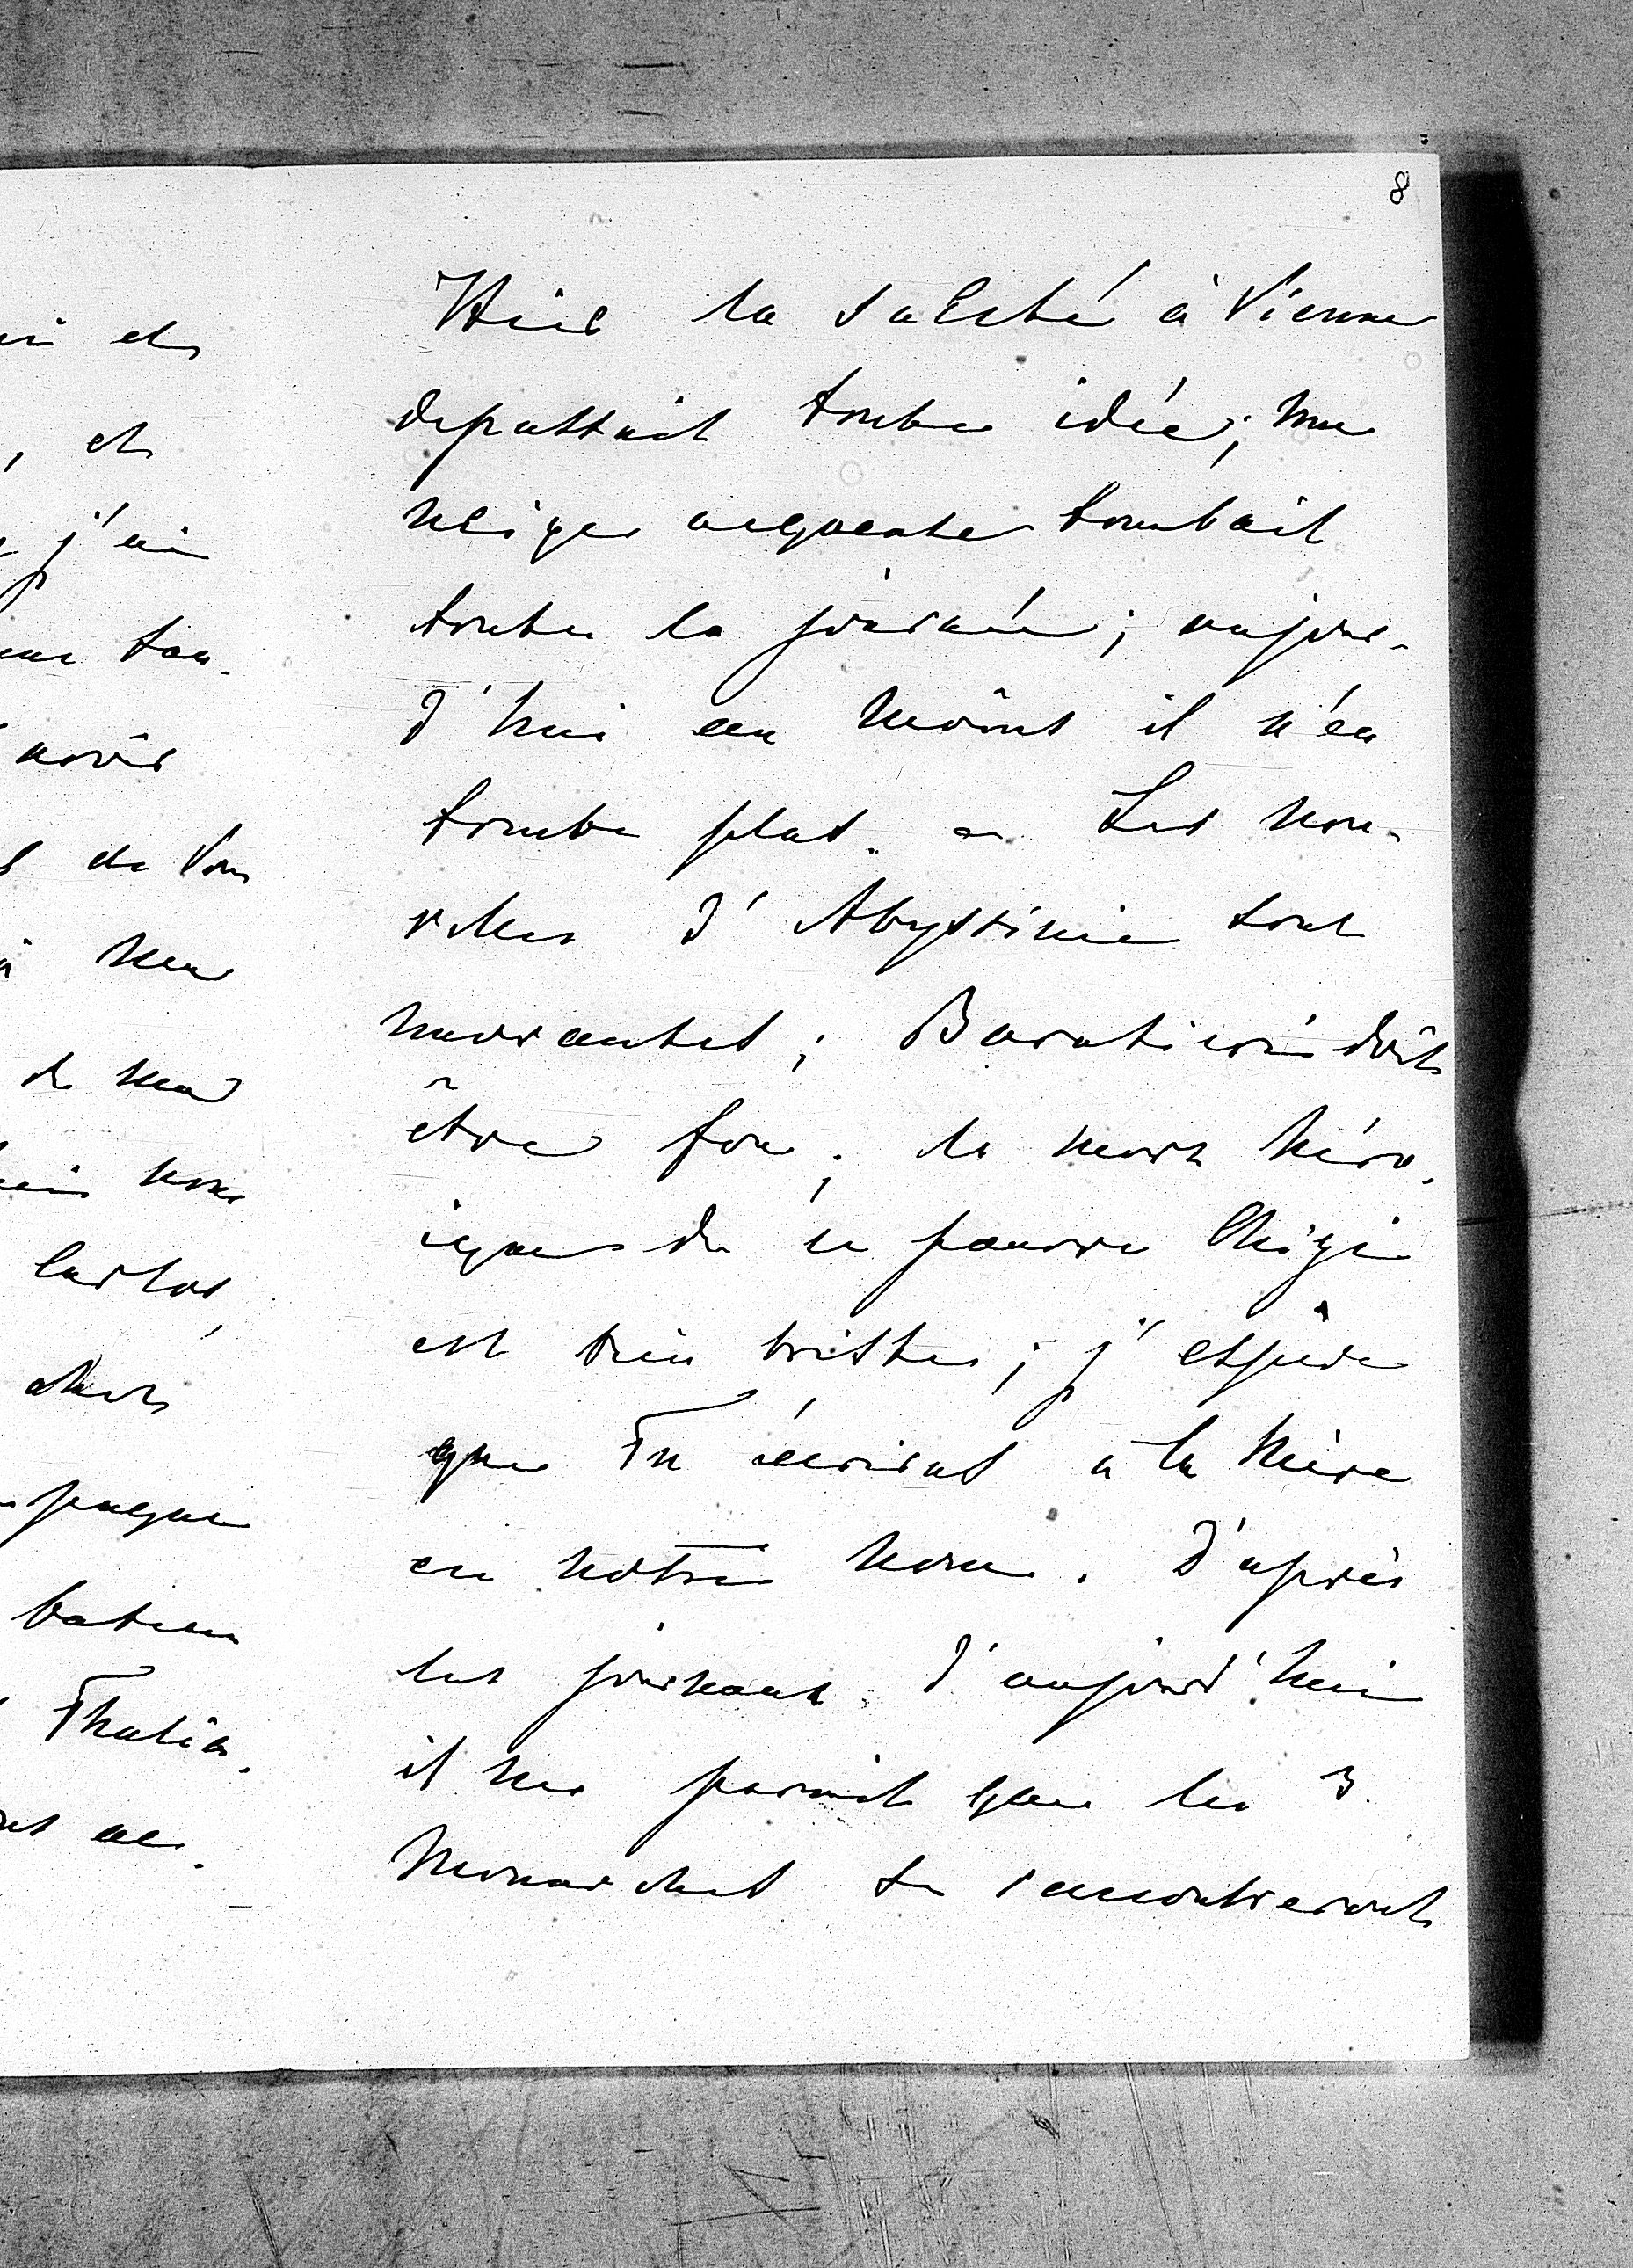 8
Hier la saleté à Vienne
depassait toute idée; une
neige aequeate tombait
toute la journée; aujour-
d'hui au moins il n'en
tombe plus. — Les nou-
velles d'Abyssinie sont
navrantes; Baratieri doit
être fou; la mort héro-
ique de ce pauvre Chigi
est bien triste; j'espère
que Tu écriras à la Mère
en notre nom. D'après
les journaux d'aujourd'hui
il me parait que les 3
Monarches se rencontreront
et
, et
j'ai
tou-
avoir
de Vous
à ma
de ma
nous
Carlos,
chets
pagne
bateau
Thalia.